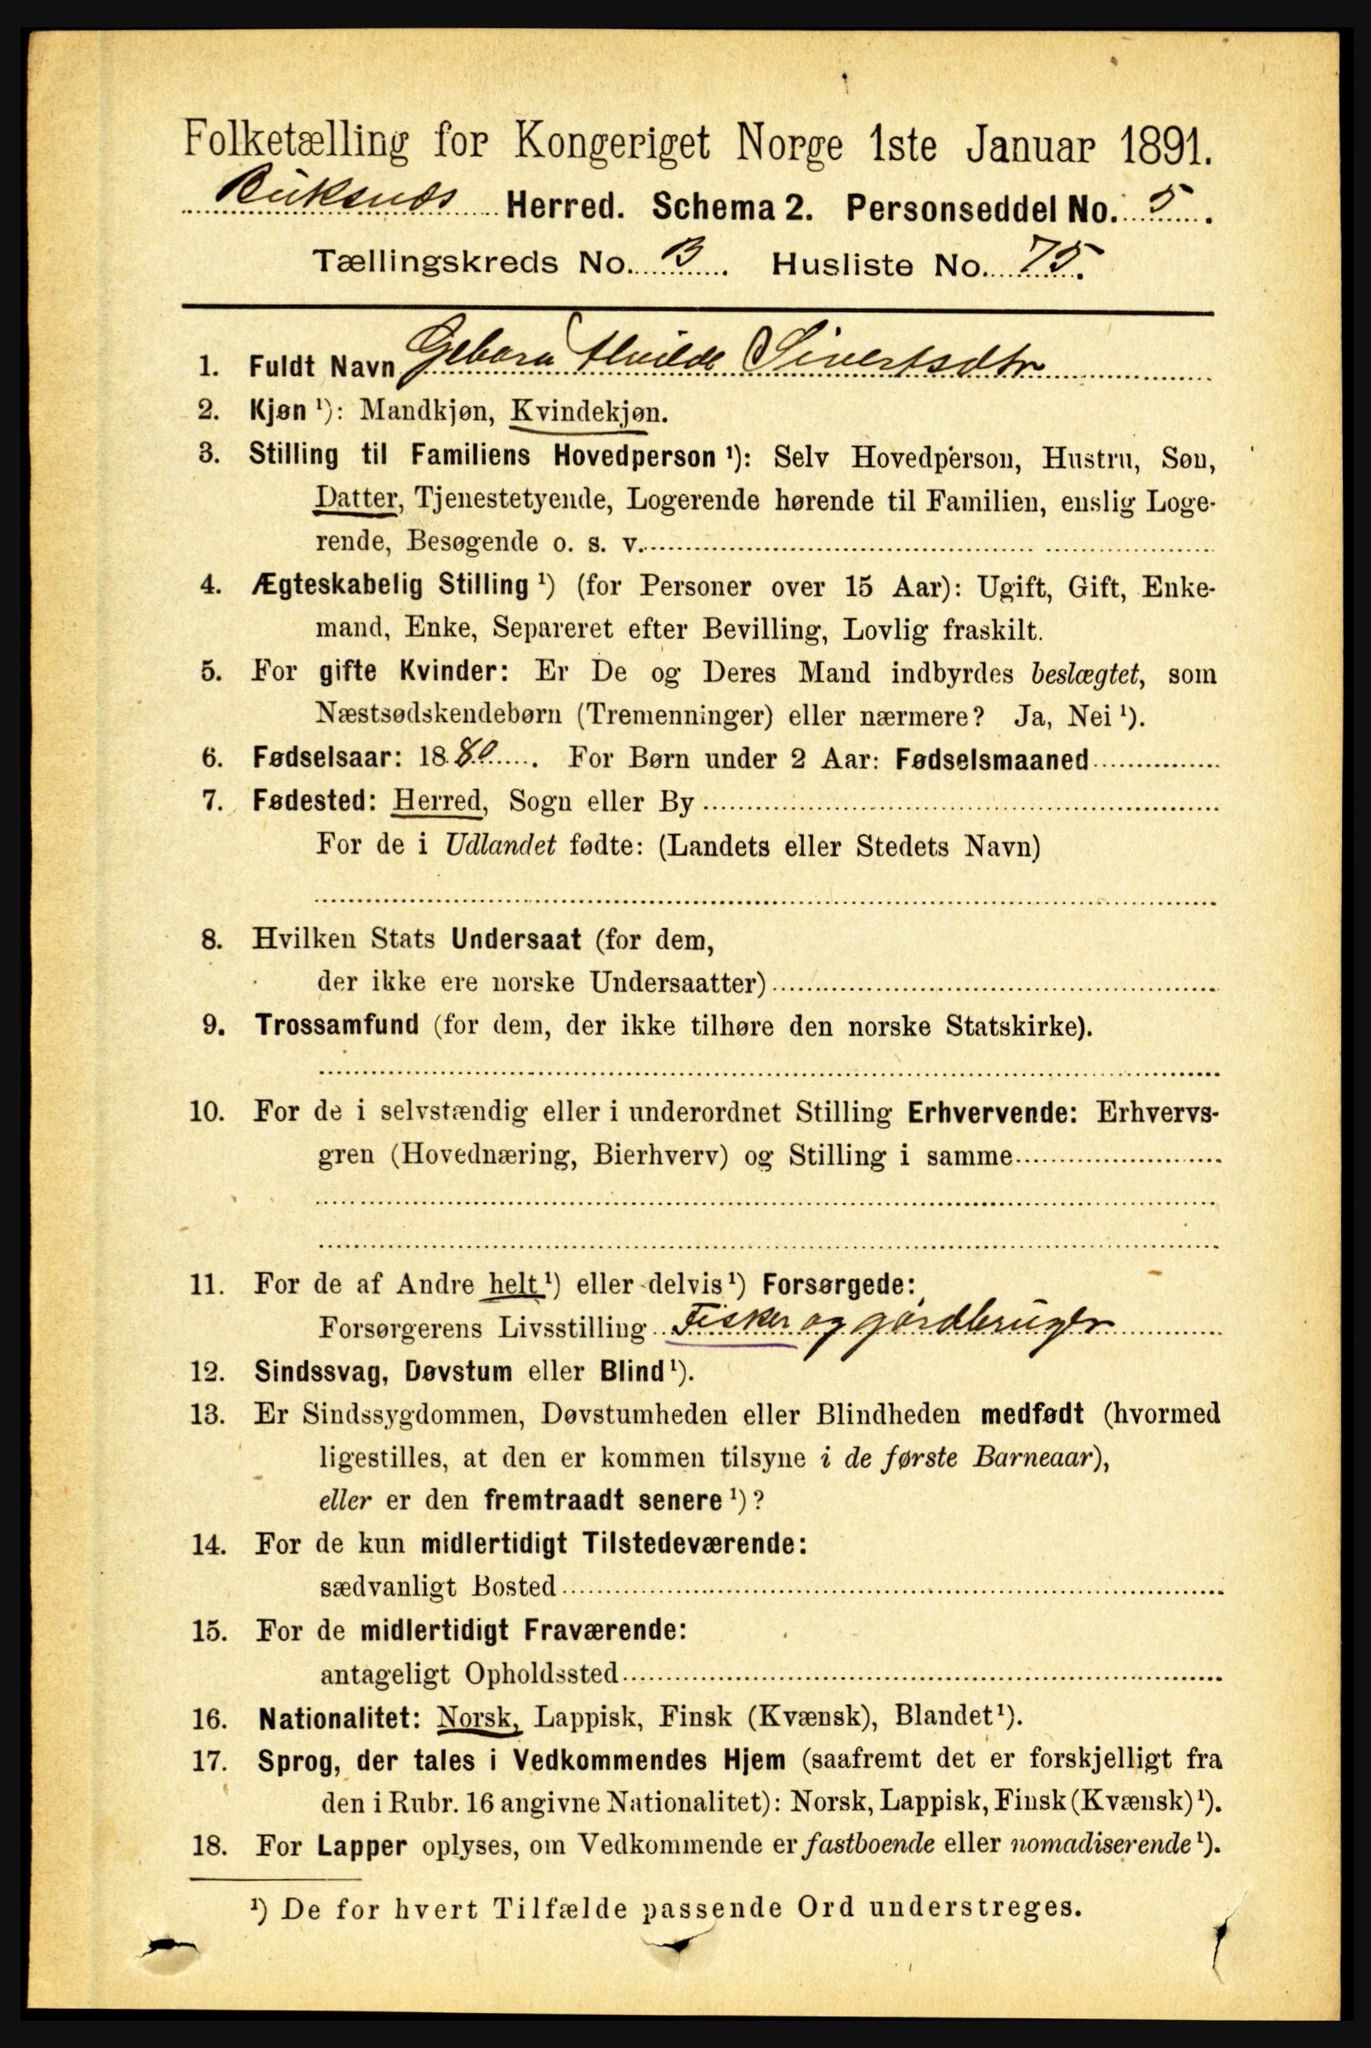 Folketælling for Kongeriget Norge 1ste Januar 1891.
Buksnæs Herred. Schema 2. Personseddel No. 5.
Tællingskreds No. 3. Husliste No. 75.
1. Fuldt Navn Gebora Alvilde Sivertsdtr
2. Kjøn ¹): Mandkjøn, Kvindekjøn.
3. Stilling til Familiens Hovedperson ¹): Selv Hovedperson, Hustru, Søn,
Datter, Tjenestetyende, Logerende hørende til Familien, enslig Loge-
rende, Besøgende o. s. v.
4. Ægteskabelig Stilling ¹) (for Personer over 15 Aar): Ugift, Gift, Enke-
mand, Enke, Separeret efter Bevilling, Lovlig fraskilt.
5. For gifte Kvinder: Er De og Deres Mand indbyrdes beslægtet, som
Næstsødskendebørn (Tremenninger) eller nærmere? Ja, Nei ¹).
6. Fødselsaar: 1880. For Børn under 2 Aar: Fødselsmaaned
7. Fødested: Herred, Sogn eller By
For de i Udlandet fødte: (Landets eller Stedets Navn)
8. Hvilken Stats Undersaat (for dem,
der ikke ere norske Undersaatter)
9. Trossamfund (for dem, der ikke tilhøre den norske Statskirke).
10. For de i selvstændig eller i underordnet Stilling Erhvervende: Erhvervs-
gren (Hovednæring, Bierhverv) og Stilling i samme
11. For de af Andre helt ¹) eller delvis ¹) Forsørgede:
Forsørgerens Livsstilling Fisker og gårdbruger
12. Sindssvag, Døvstum eller Blind ¹).
13. Er Sindssygdommen, Døvstumheden eller Blindheden medfødt (hvormed
ligestilles, at den er kommen tilsyne i de første Barneaar),
eller er den fremtraadt senere ¹)?
14. For de kun midlertidigt Tilstedeværende:
sædvanligt Bosted
15. For de midlertidigt Fraværende:
antageligt Opholdssted
16. Nationalitet: Norsk, Lappisk, Finsk (Kvænsk), Blandet ¹).
17. Sprog, der tales i Vedkommendes Hjem (saafremt det er forskjelligt fra
den i Rubr. 16 angivne Nationalitet): Norsk, Lappisk, Finsk (Kvænsk) ¹).
18. For Lapper oplyses, om Vedkommende er fastboende eller nomadiserende ¹).
¹) De for hvert Tilfælde passende Ord understreges.